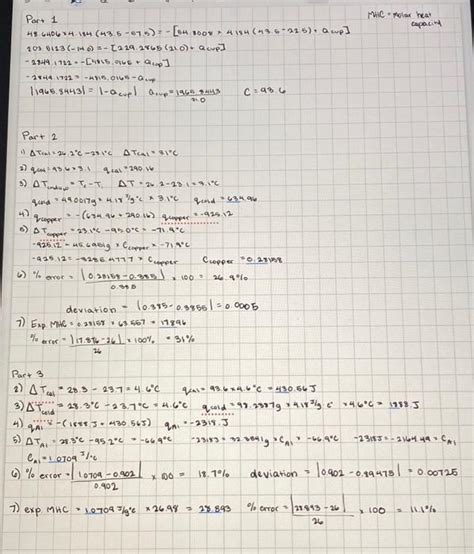 Part 1
MHC = molar heat capacity
48.6406 x 4.184 (43.5 - 57.5) = - [54.8008 x 4.184 (43.5 - 22.5) + qcup]
203.5123 (-14.0) = - [229.2865 (21.0) + qcup]
-2849.1722 = - [4815.0165 + qcup]
-2849.1722 = -4815.0165 - qcup
|1965.8443| = |-qcup| qcup = 1965.8443 / 21.0 C = 93.6
Part 2
1) ΔTcal = 26.2°C - 23.1°C ΔTcal = 3.1°C
2) qcal = 93.6 x 3.1 qcal = 290.16
3) ΔT = Tf - Ti ΔT = 26.2 - 23.1 = 3.1°C
qcold = 49.0017g x 4.18 J/g°C x 3.1°C qcold = 634.96
4) qcopper = - (634.96 + 290.16) qcopper = -925.12
5) ΔTcopper = 23.1°C - 95.0°C = -71.9°C
-925.12 = 45.6951g x Ccopper x -71.9°C
-925.12 = -3285.4777 x Ccopper Ccopper = 0.28158
6) % error = |0.28158 - 0.385| / 0.385 x 100 = 26.9%
deviation = |0.385 - 0.3855| = 0.0005
7) Exp MHC = 0.28158 x 63.557 = 17.896
% error = |17.896 - 26| / 26 x 100% = 31%
Part 3
2) ΔTcal = 28.3 - 23.7 = 4.6°C qcal = 93.6 x 4.6°C = 430.56 J
3) ΔTcold = 28.3°C - 23.7°C = 4.6°C qcold = 98.2387g x 4.18 J/g°C x 4.6°C = 1888 J
4) qAl = - (1888 J + 430.56 J) qAl = -2318 J
5) ΔTAl = 28.3°C - 95.2°C = -66.9°C -2318 J = 32.3541g x CAl x -66.9°C -2318 J = -2164.49 x CAl
CAl = 1.0709 J/°C
6) % error = |1.0709 - 0.902| / 0.902 x 100 = 18.7% deviation = |0.902 - 0.89475| = 0.00725
7) exp MHC = 1.0709 J/g°C x 26.98 = 28.893 % error = |28.893 - 26| / 26 x 100 = 11.1%